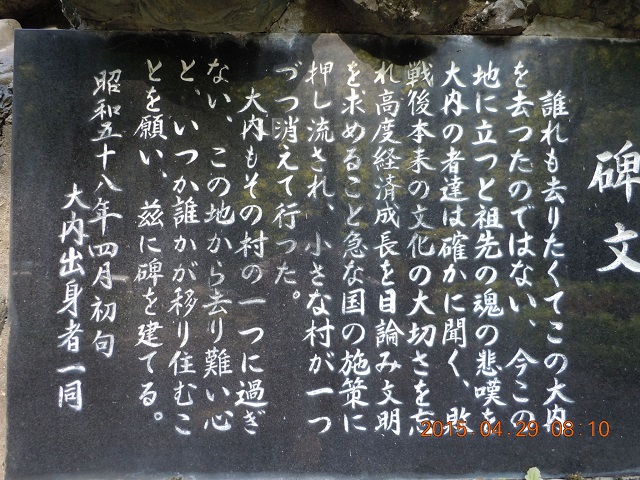 碑文
誰れも去りたくてこの大内
を去つたのではない、今この
地に立つと祖先の魂の悲嘆を
大内の者達は確かに聞く、敗
戦後本来の文化の大切さを忘
れ高度経済成長を目論み文明
を求めること急な国の施策に
押し流され、小さな村が一つ
づつ消えて行った。
大内もその村の一つに過ぎ
ない、この地から去り難い心
と、いつか誰かが移り住むこ
とを願い、茲に碑を建てる。
昭和五十八年四月初旬
大内出身者一同
2015 04 29 08 10